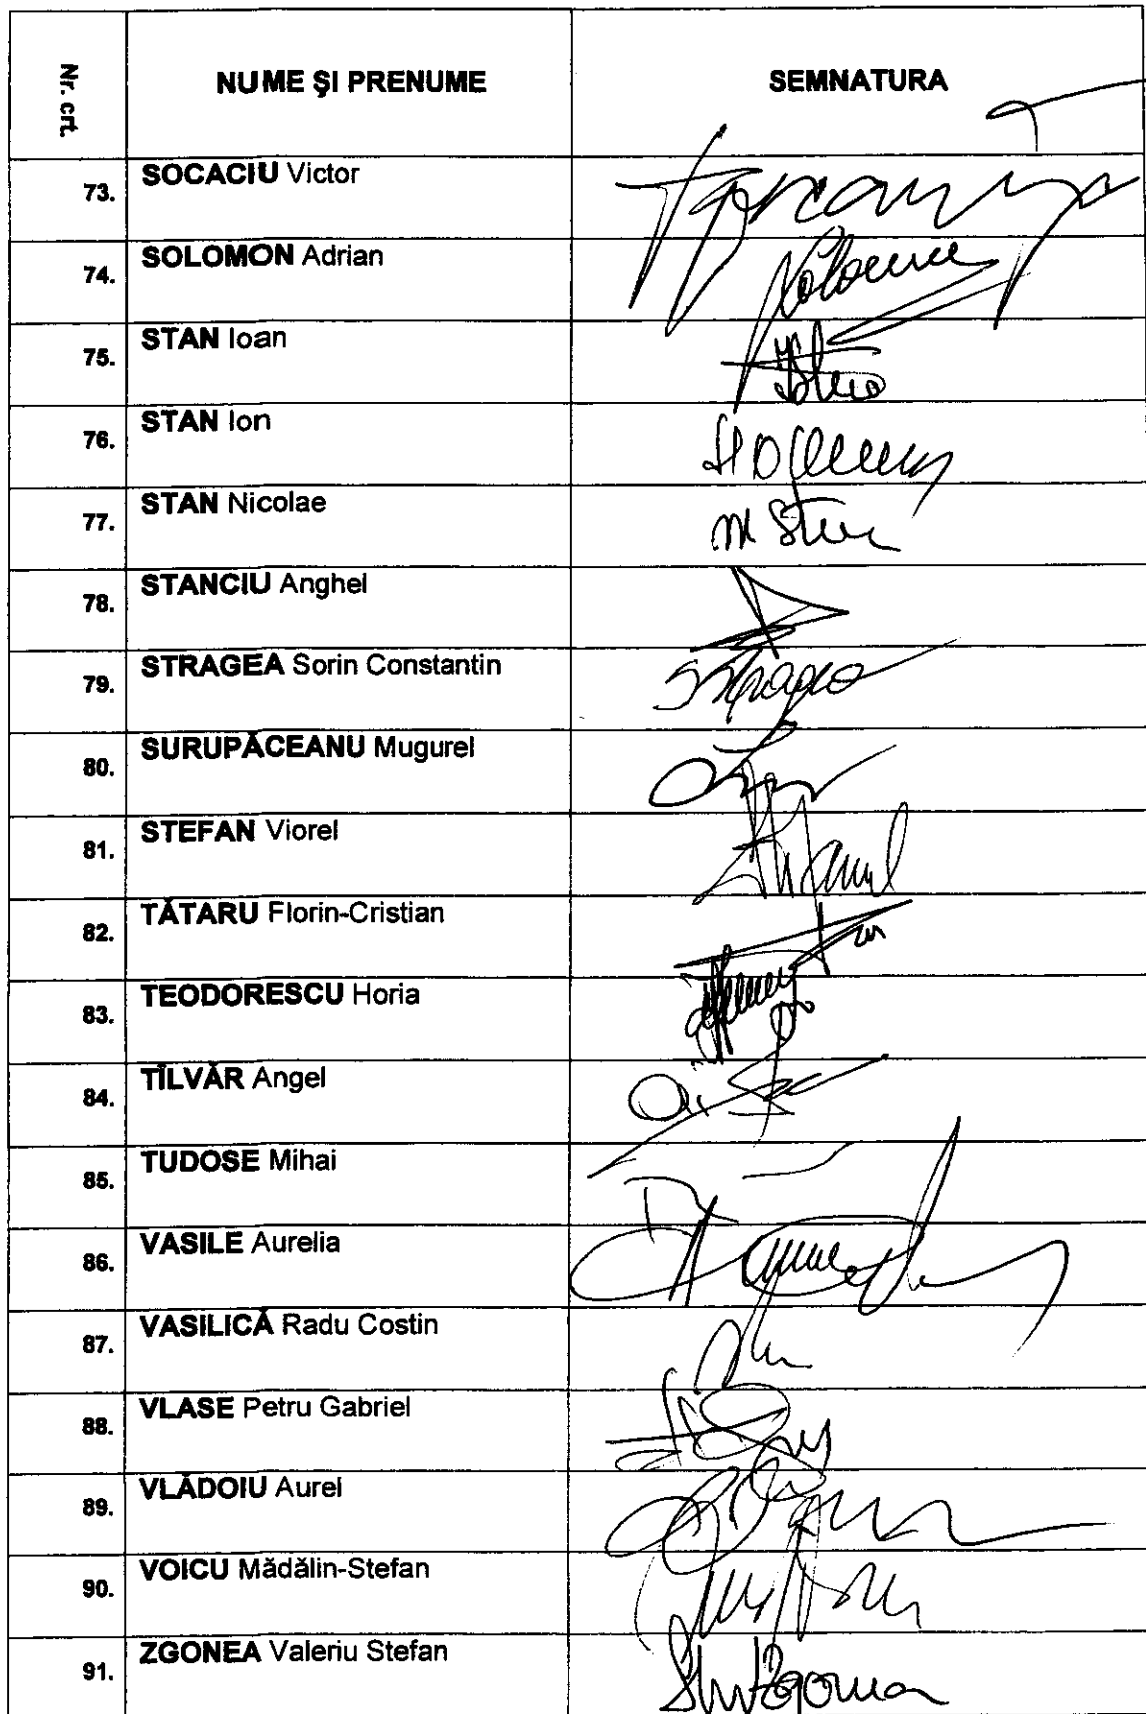 Nr. crt. NUME ŞI PRENUME SEMNATURA
73. SOCACIU Victor
74. SOLOMON Adrian
75. STAN Ioan
76. STAN Ion
77. STAN Nicolae
78. STANCIU Anghel
79. STRAGEA Sorin Constantin
80. SURUPĂCEANU Mugurel
81. STEFAN Viorel
82. TĂTARU Florin-Cristian
83. TEODORESCU Horia
84. TÎLVĂR Angel
85. TUDOSE Mihai
86. VASILE Aurelia
87. VASILICĂ Radu Costin
88. VLASE Petru Gabriel
89. VLĂDOIU Aurel
90. VOICU Mădălin-Stefan
91. ZGONEA Valeriu Stefan